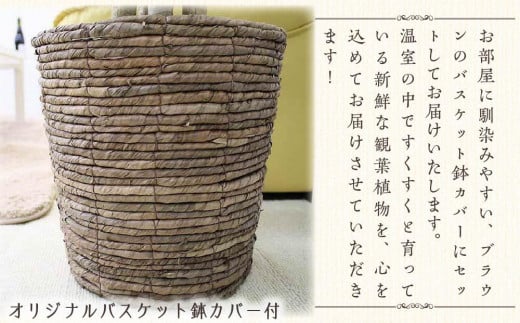 お部屋に馴染みやすい、ブラウ
ンのバスケット鉢カバーにセッ
トしてお届けいたします。
温室の中ですくすくと育って
いる新鮮な観葉植物を、心を
込めてお届けさせていただき
ます！
オリジナルバスケット鉢カバー付